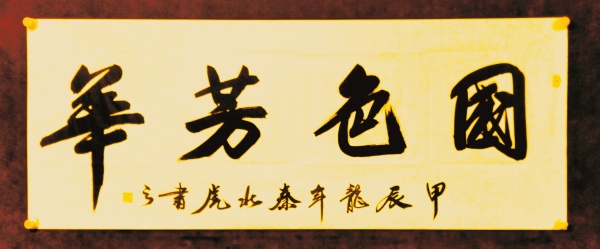 國色芳華
甲辰龍年秦水虎書